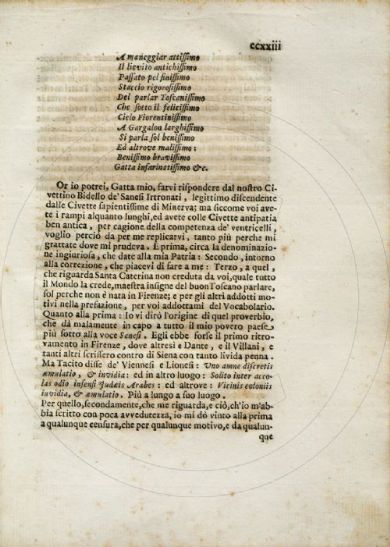 ccxxiii
A maneggiar attissimo
Il lievito antichissimo
Passato pel finissimo
Staccio rigorosissimo
Del parlar Toscanissimo
Che sotto il felicissimo
Cielo Fiorentinissimo
A Gargalon larghissimo
Si parla sol benissimo
Ed altrove malissimo:
Benissimo bravissimo
Gatta infarinatissimo &c.
Or io potrei, Gatta mio, farvi rispondere dal nostro Ci-
vettino Bidello de' Sanesi Intronati, legittimo discendente
dalle Civette sapientissime di Minerva; ma siccome voi ave-
te i rampi alquanto lunghi, ed avete colle Civette antipatia
ben antica, per cagione della competenza de' ventricelli,
voglio perciò da per me replicarvi, tanto più perche mi
grattate dove mi prudeva. E prima, circa la denominazio-
ne ingiuriosa, che date alla mia Patria: Secondo, intorno
alla correzione, che piacevi di fare a me: Terzo, a quel,
che riguarda Santa Caterina non creduta da voi, quale tutto
il Mondo la crede, maestra insigne del buon Toscano parlare,
sol perche non è nata in Firenze; e per gli altri addotti mo-
tivi nella prefazione, per voi addottami del Vocabolario.
Quanto alla prima: Io vi dirò l'origine di quel proverbio,
che dà malamente in capo a tutto il mio povero paese
più sotto alla voce Sanesi. Egli ebbe forse il primo ritro-
vamento in Firenze, dove altresi e Dante, e il Villani, e
tanti altri scrissero contro di Siena con tanto livida penna.
Ma Tacito disse de' Viennesi e Lionesi: Uno amne discretis
æmulatio, & invidia: ed in altro luogo: Solito inter acco-
las odio infensi Judæis Arabes: ed altrove: Vicinis coloniis
invidia, & æmulatio. Più a lungo a suo luogo.
Per quello, secondamente, che me riguarda, e ciò, ch'io m'ab-
bia scritto con poca avvedutezza, io mi dò vinto alla prima
a qualunque censura, che per qualunque motivo, e da qualun-
que